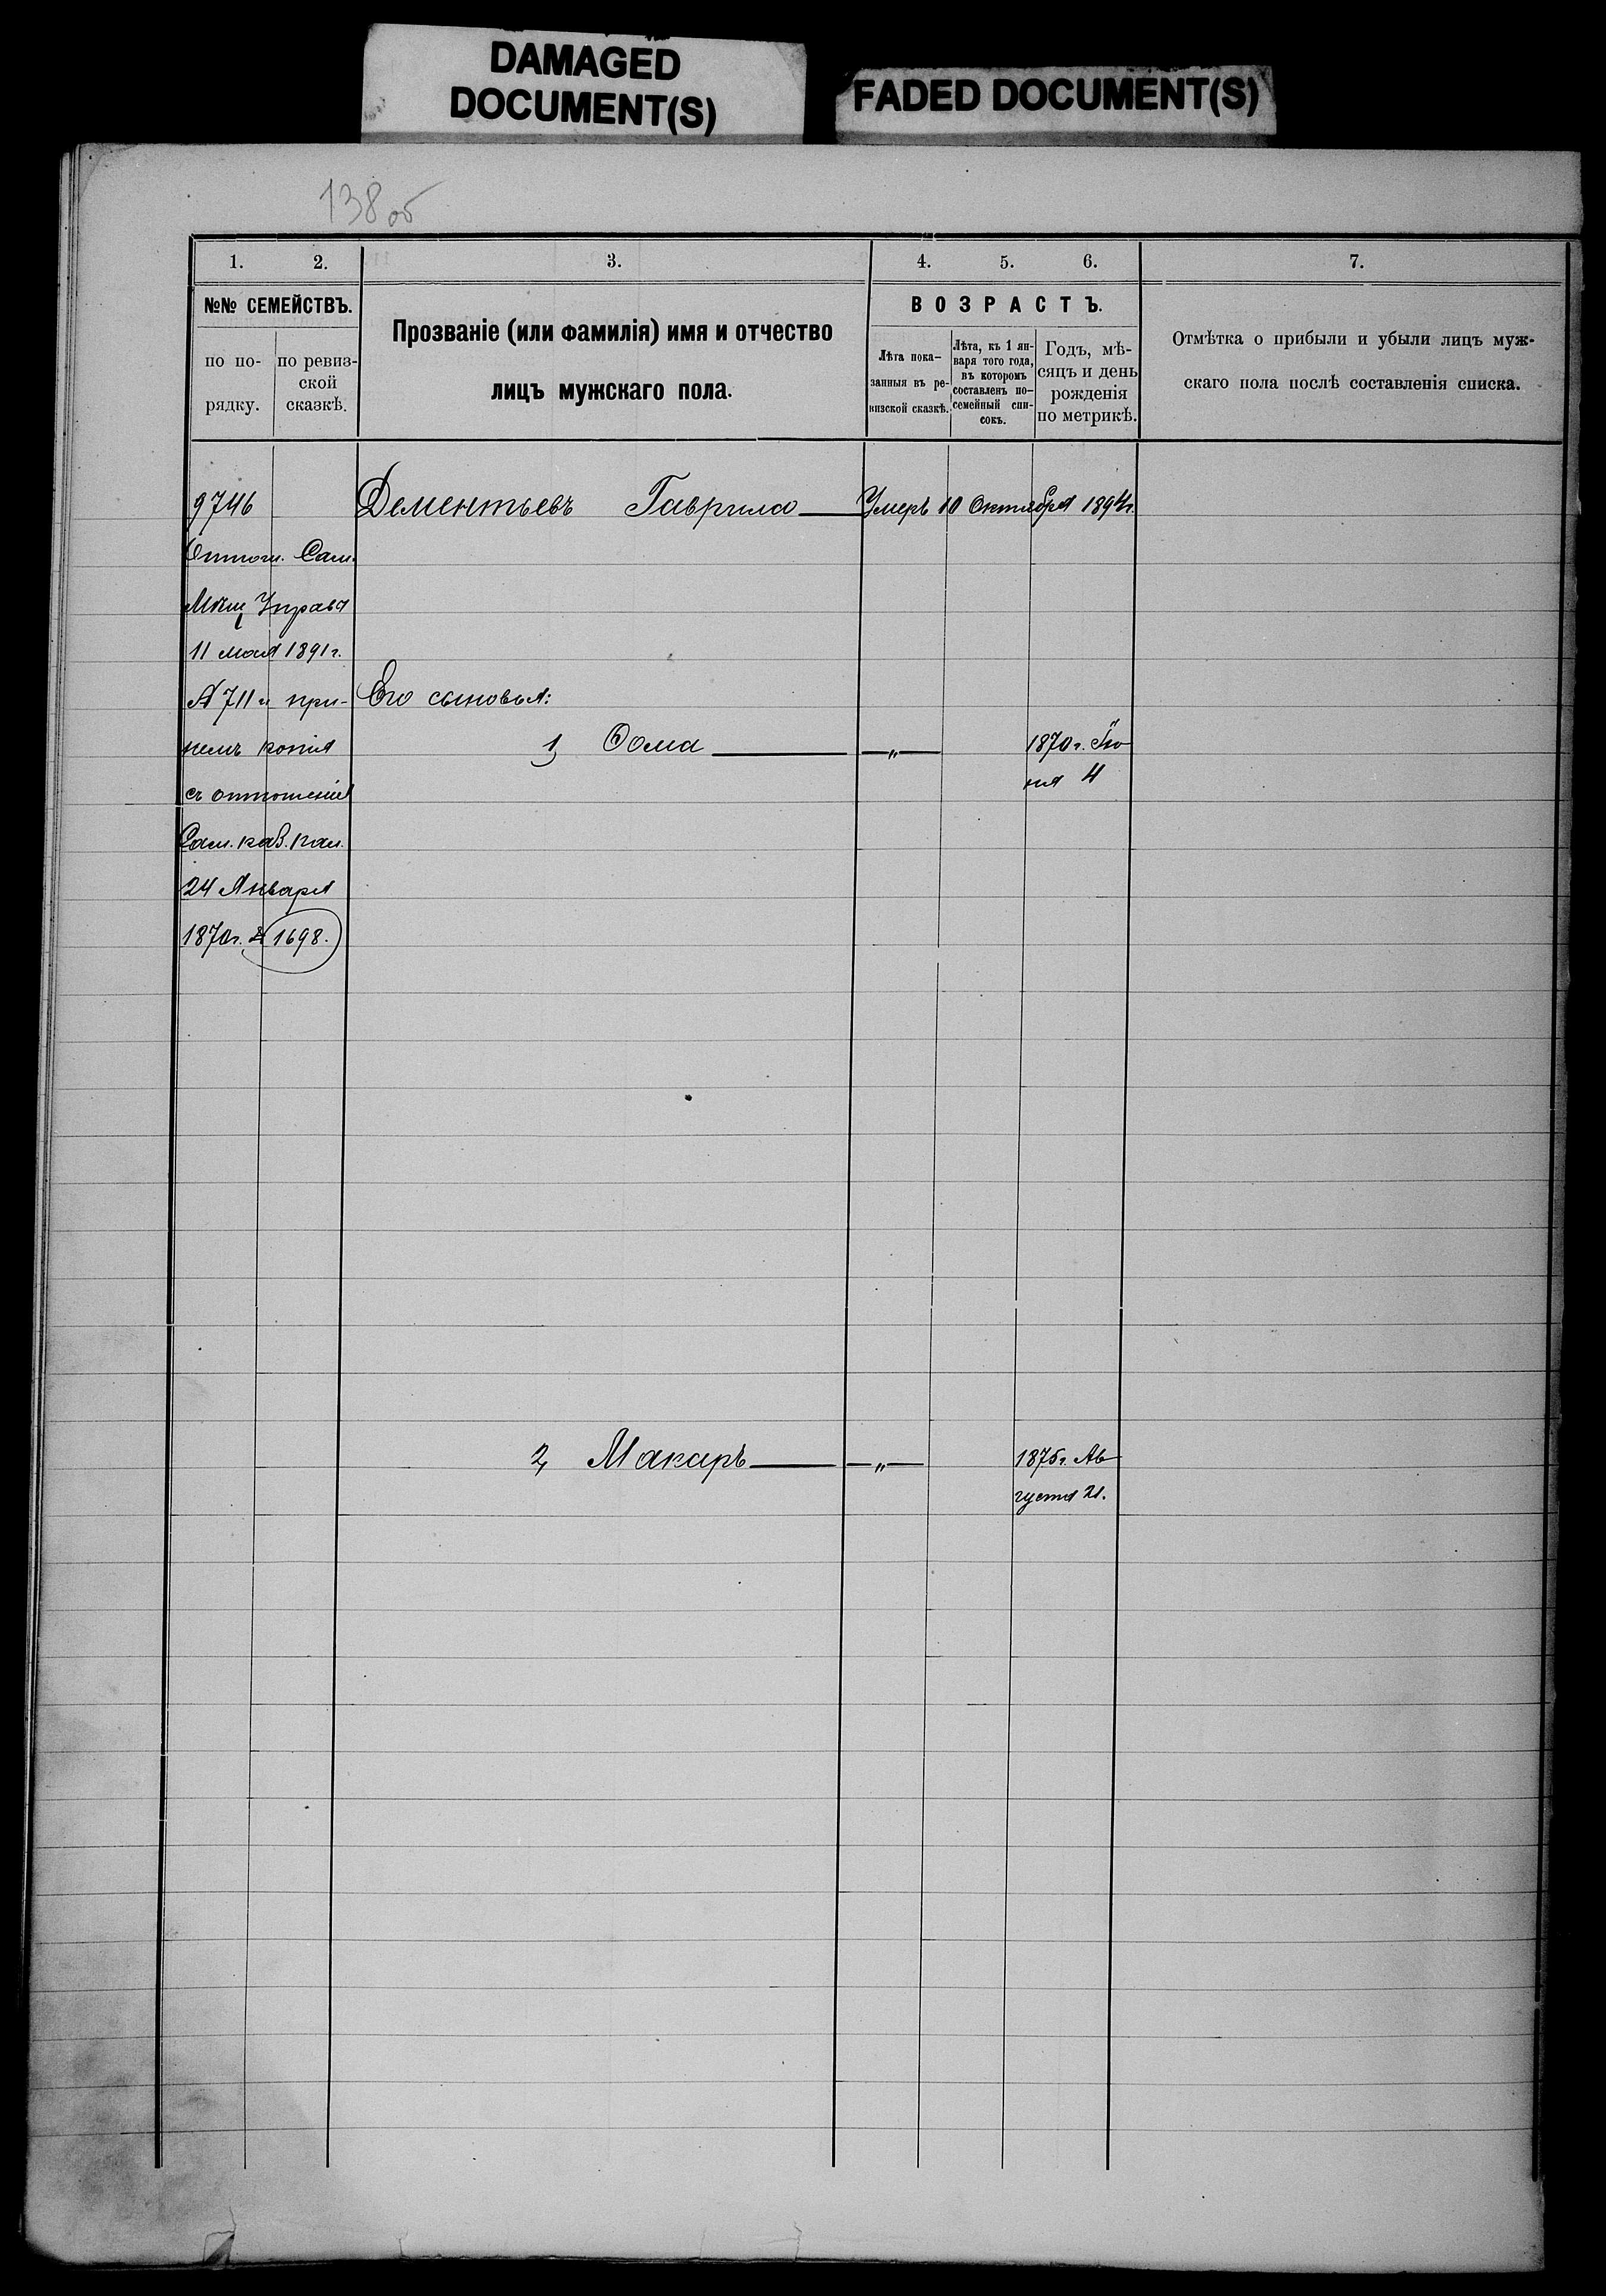 DAMAGED
DOCUMENT(S)
FADED DOCUMENT(S)
138 об
1. 2. 3. 4. 5. 6. 7.
№№ СЕМЕЙСТВЪ.
по по-
рядку.
по ревиз-
ской
сказкѣ.
Прозваніе (или фамилія) имя и отчество
лицъ мужскаго пола.
ВОЗРАСТЪ.
Лѣта пока-
занныя въ ре-
визской сказкѣ.
Лѣта, къ 1 ян-
варя того года,
въ которомъ
составленъ по-
семейный спи-
сокъ.
Годъ, мѣ-
сяцъ и день
рожденія
по метрикѣ.
Отмѣтка о прибыли и убыли лицъ муж-
скаго пола послѣ составленія списка.
9746 Дементьевъ Гаврила Умеръ 10 Октября 1894г.
Отнош. Сам.
Мѣщ Управа
11 мая 1891 г.
№ 711 и при-
немъ копія
съ отношенія
Сам. каз. пал.
24 Января
1870г. № 1698.
Его сыновья:
1, Ѳома — „ — 1870 г. Ію
ня 4
2, Макаръ — „ — 1875 г. Ав
густа 21.